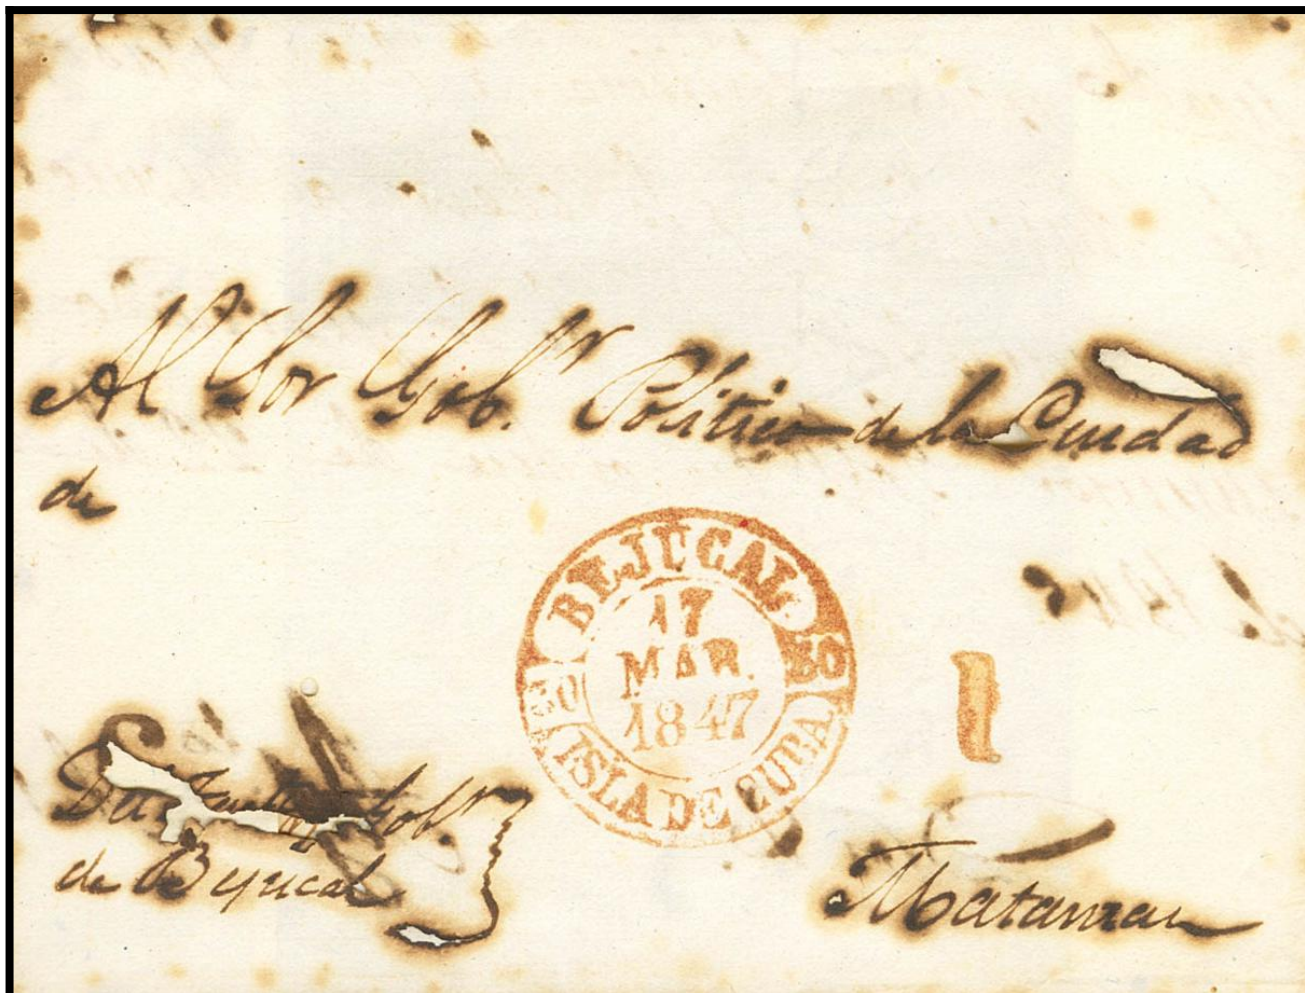 Al Sor Gobr. Politico de la Ciudad
de
BEJUCAL
17
MAR.
1847
ISLA DE CUBA
1
Gobor
de Bejucal
Matanzas